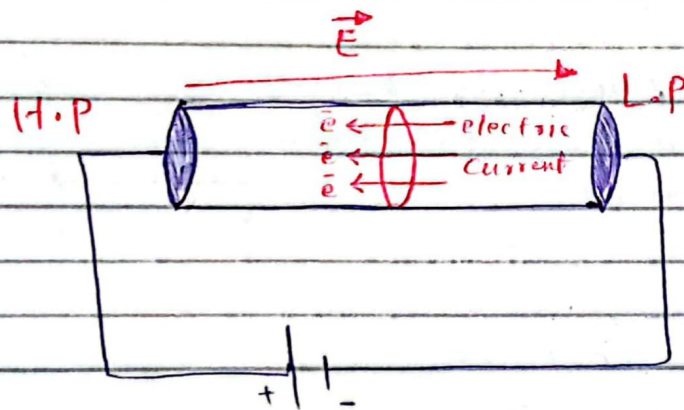 E
H.P
L.P
ē electric
ē current
ē
+ -